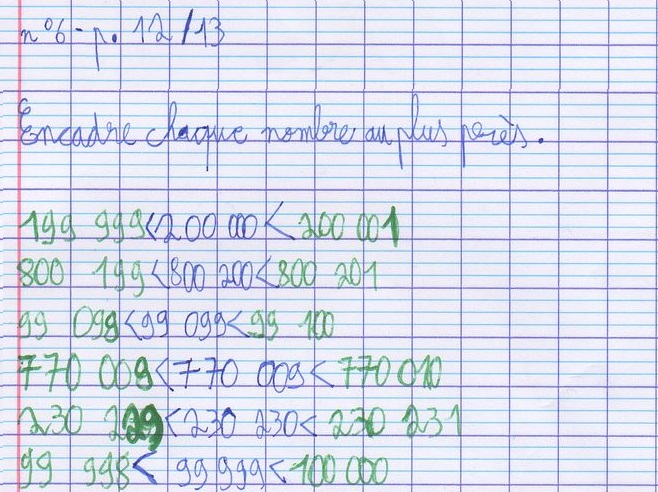 n°6 - p. 12/13
Encadre chaque nombre au plus près.
199 999<200 000<200 001
800 199<800 200<800 201
99 098<99 099<99 100
770 008<770 009<770 010
230 229<230 230<230 231
99 998<99 999<100 000